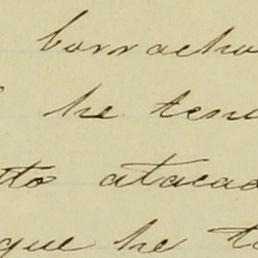 borracho
he tení
tto atacad
que he t